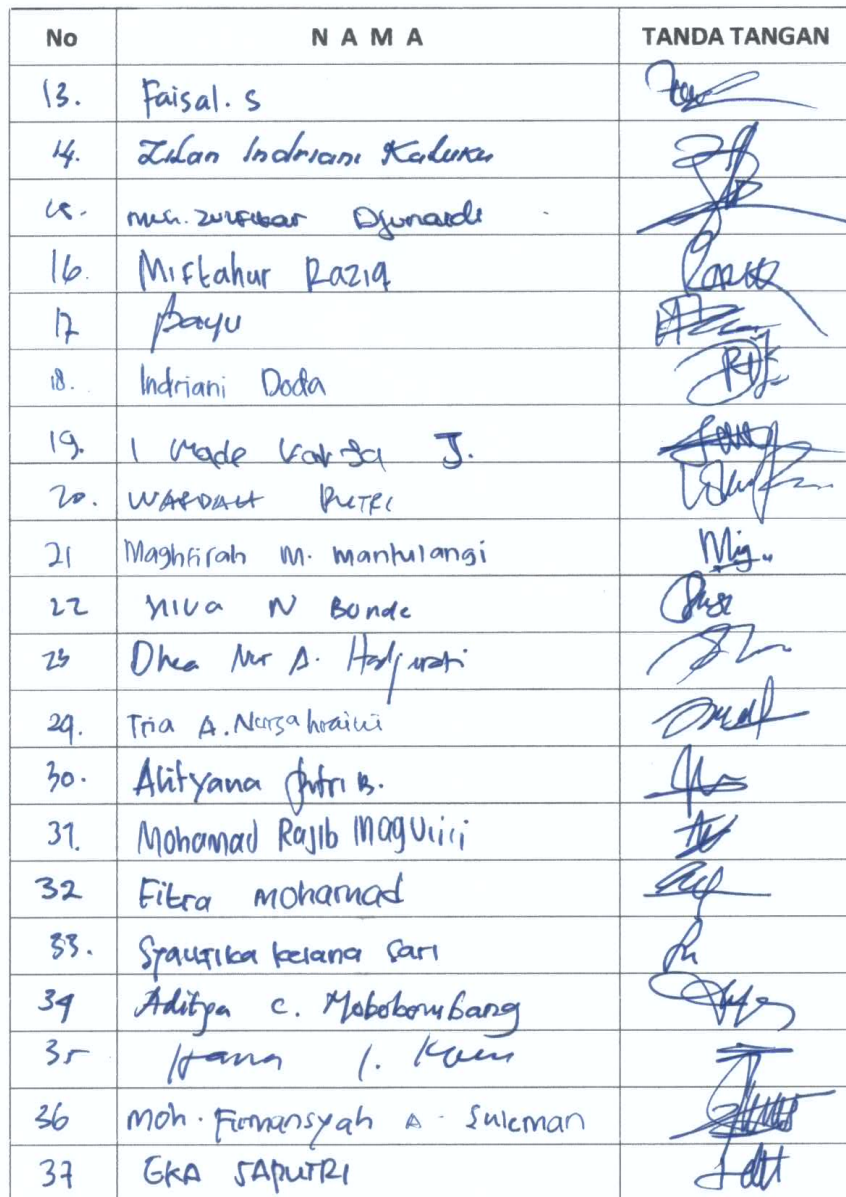 No N A M A TANDA TANGAN
13. Faisal. S
14. Zilan Indriani Kaluku
15. Moh. Zulfikar Djunaidi
16. Miftahur Raziq
17 Bayu
18. Indriani Doda
19. I Made J.
20. WARDAH PUTRI
21 Maghfirah M. Mantulangi Mig..
22 N Bonde
23 Dhea Nur A. Hadjarati
29. Tria A. Nursahraini
30. Alityana Putri B.
31. Mohamad Rajib
32 Fitra Mohamad
33. kelana Sari
34 Aditya C. Mobobombang
35 Hana I.
36 Moh. Firmansyah A. Suleman
37 EKA SAPUTRI